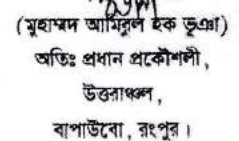 (মুহাম্মদ আমিরুল হক ভূঞা)
অতিঃ প্রধান প্রকৌশলী,
উত্তরাঞ্চল,
বাপাউবো, রংপুর।